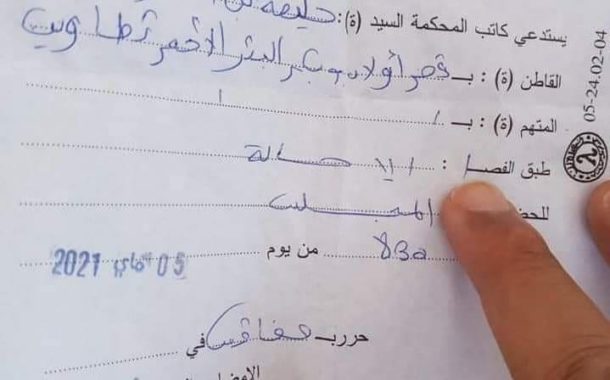 يستدعي كاتب المحكمة السيد (ة): خليفة بن
القاطن (ة) : بـ قصر أولاد البئر الأحمر تطاوين
المتهم (ة) : بـ /
طبق الفصل : الإحالة
للحضور
83o من يوم 05 ماي 2021
حرر بـ صفاقس في
05-24.02-04